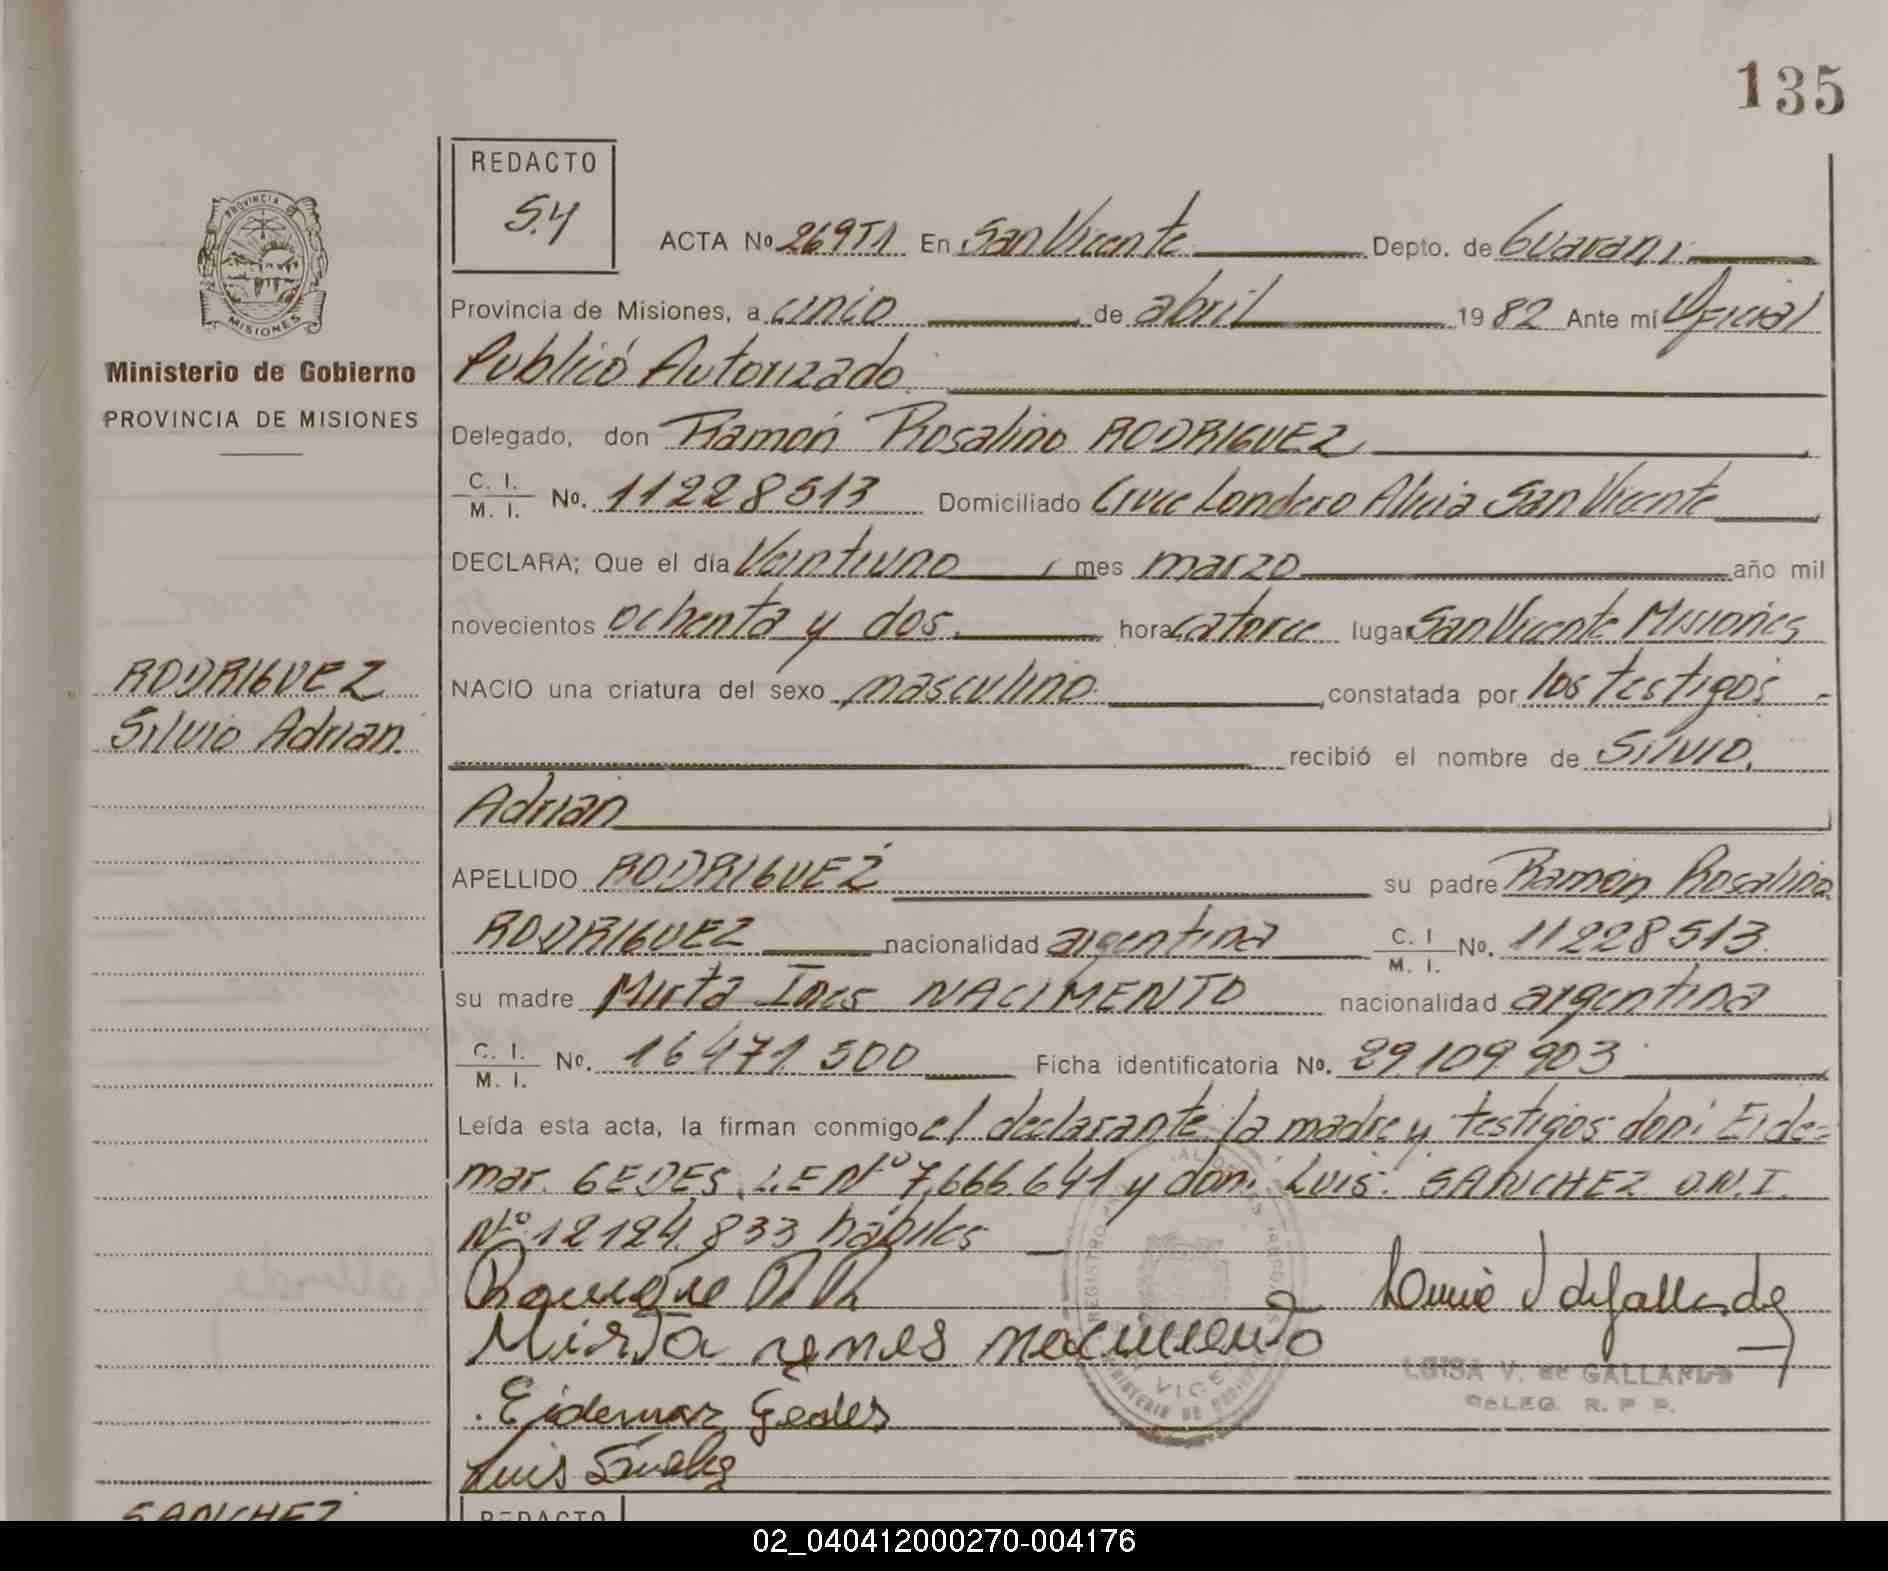 135
REDACTO
S.Y
PROVINCIA DE
MISIONES
Ministerio de Gobierno
PROVINCIA DE MISIONES
ACTA Nº 269T1 En San Vicente Depto. de Guarani
Provincia de Misiones, a cinco de abril 1982 Ante mí Oficial
Publicó Autorizado
Delegado, don Ramón Rosalino RODRIGUEZ
C. I. / M. I. Nº. 11228513 Domiciliado Londero Alicia San Vicente
DECLARA; Que el día Veintiuno mes marzo año mil
novecientos ochenta y dos hora catorce lugar San Vicente Misiones
RODRIGUEZ
Silvio Adrian
NACIO una criatura del sexo masculino, constatada por los testigos
recibió el nombre de Silvio
Adrian
APELLIDO RODRIGUEZ su padre Ramón Rosalino
RODRIGUEZ nacionalidad argentina C. I / M. I. Nº. 11228513
su madre Mirta Ines NACIMENTO nacionalidad argentina
C. I. / M. I. Nº. 16471.500 Ficha identificatoria Nº. 29109.903
Leída esta acta, la firman conmigo el declarante la madre y testigos don: Eide=
mar GEDES L.E Nº 7.666.641 y don: Luis SANCHEZ D.N.I.
Nº 12124.833 hábiles
Mirta
Eidemar Gedes
Luis
LUISA V. de GALLARDO
DELEG. R. P P.
SANCHEZ
REDACTO
02_040412000270-004176